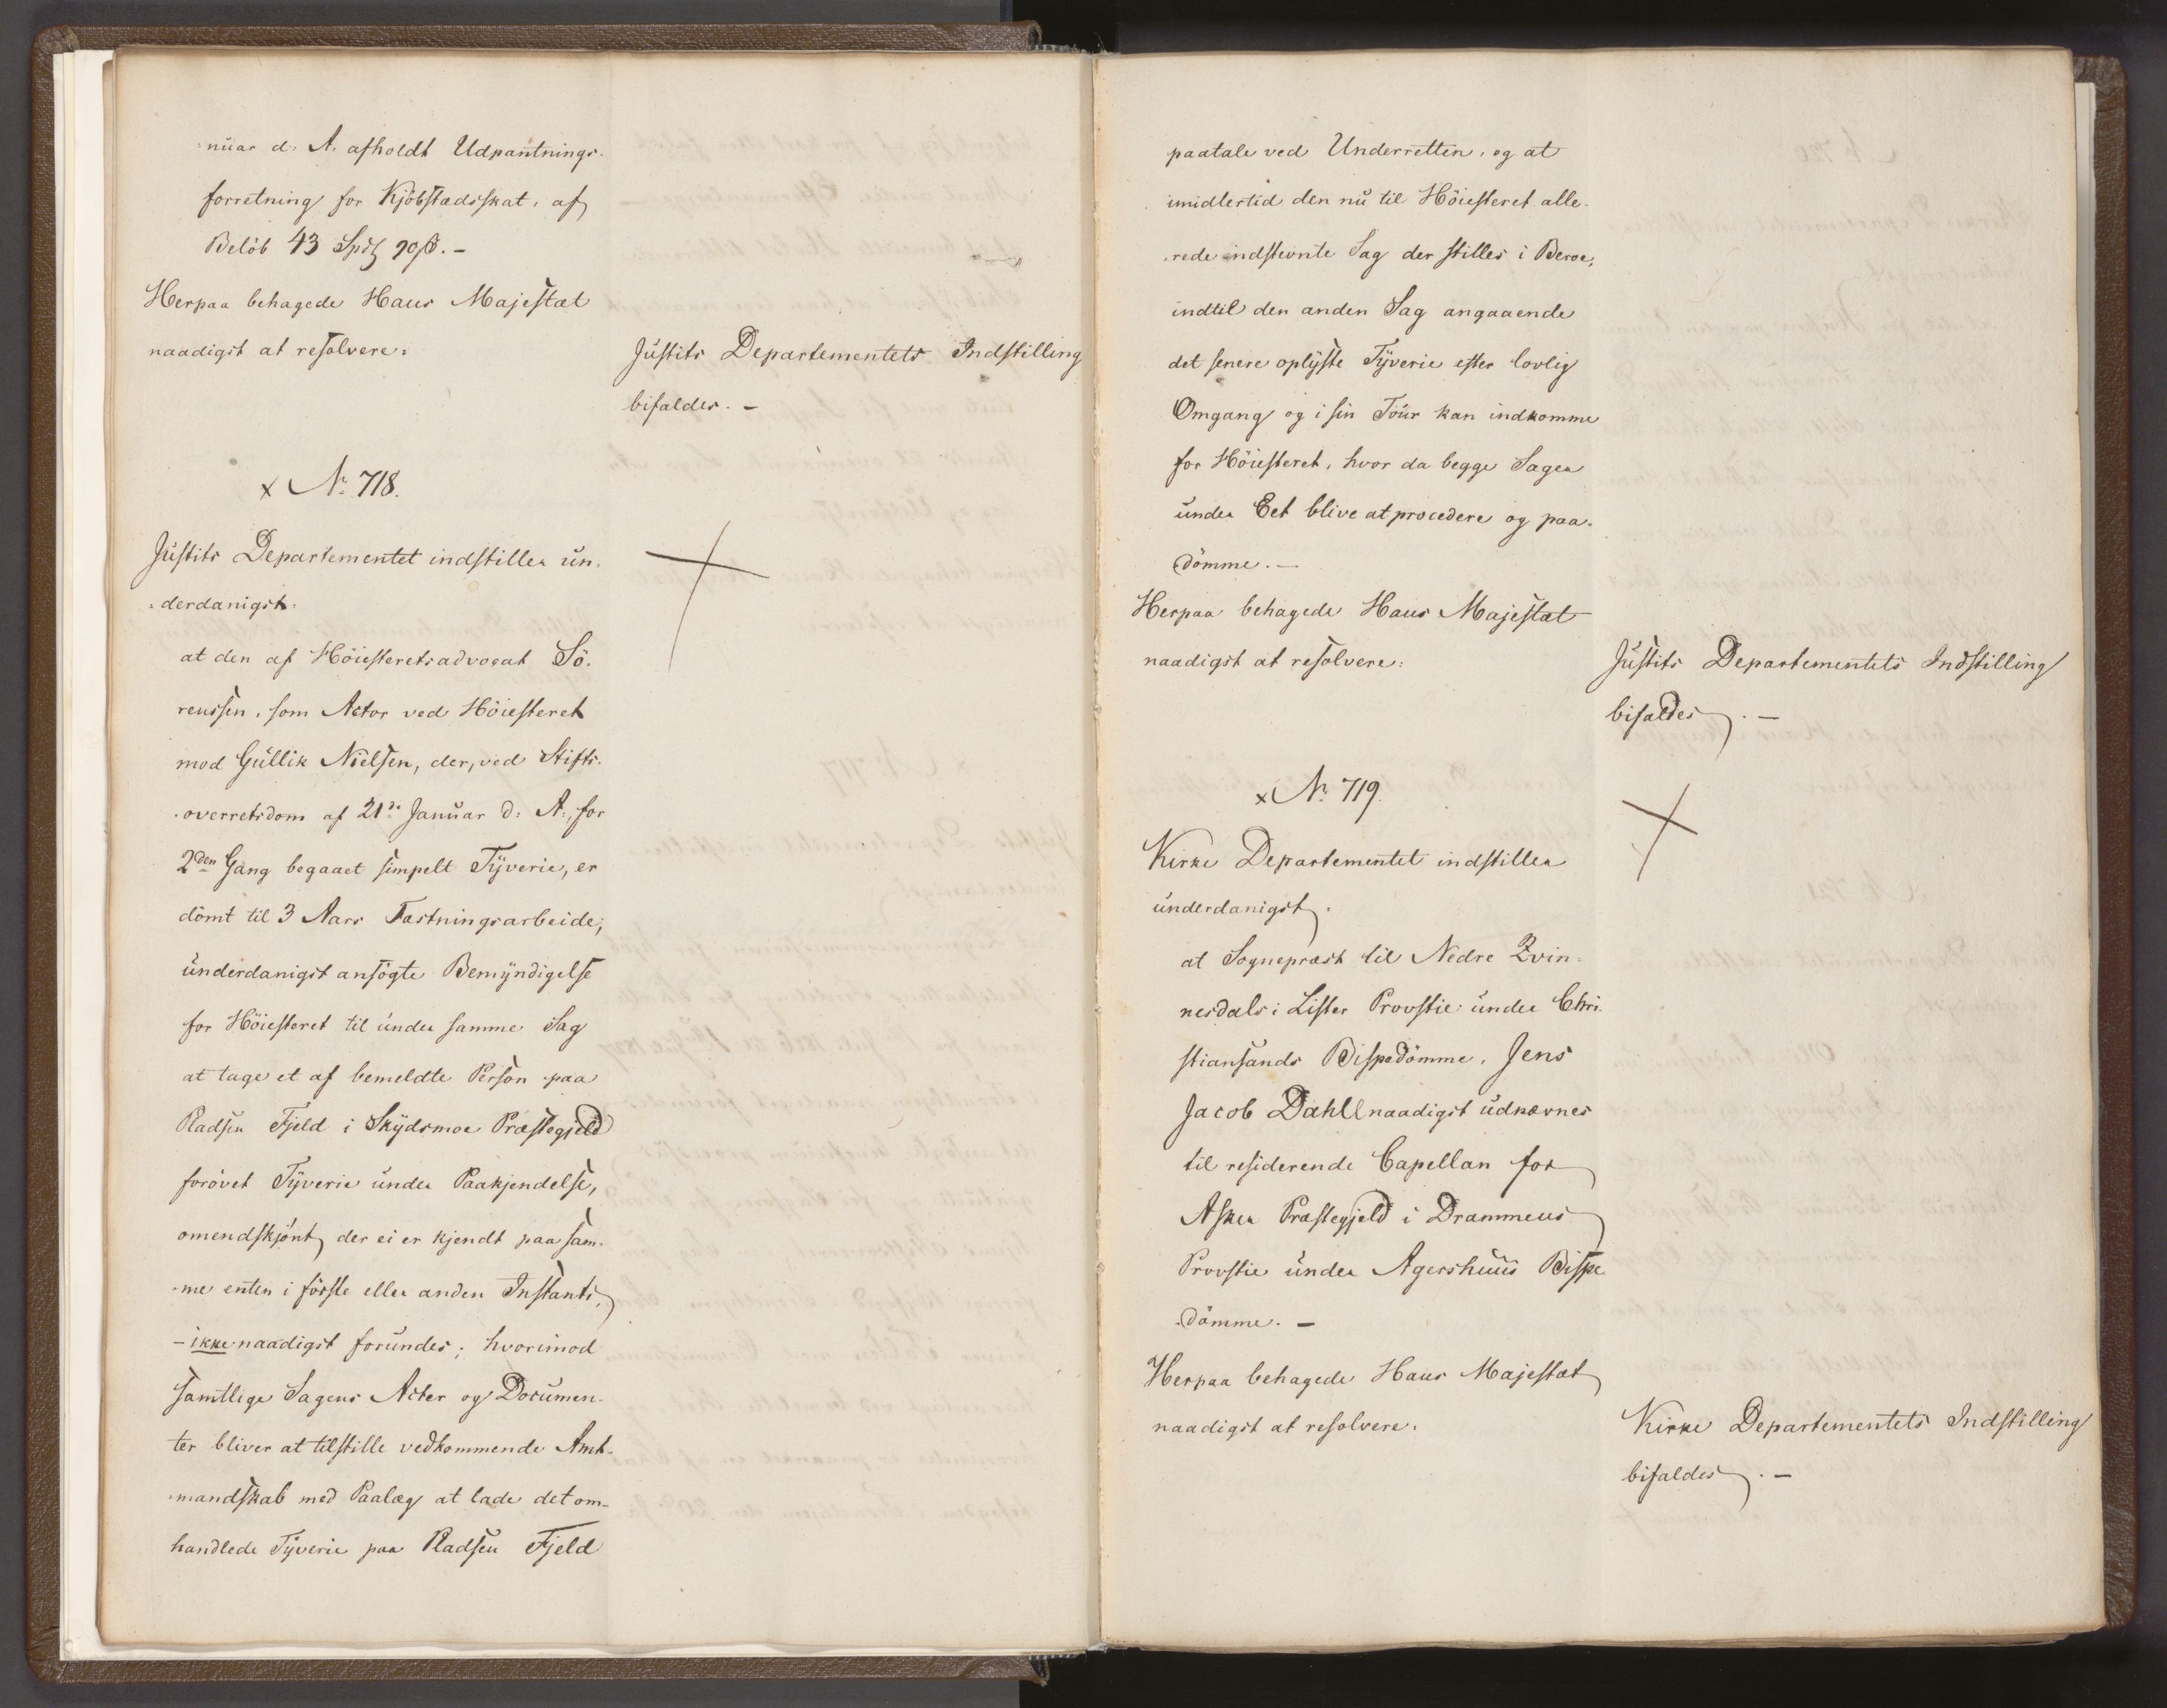 nuar d: A. afholdt Udpantnings-
forretning for Kjöbstadsskat, af
Belöb 43 Spd 90 ß. -
Herpaa behagede Hans Majestæt
naadigst at resolvere:
Justits Departementets Indstilling
bifaldes. -
x No 718.
Justits Departementet indstiller un-
derdanigst:
at den af Höiesteretsadvocat Sö-
renssen, som Actor ved Höiesteret
mod Gullik Nielsen, der, ved Stifts-
overretsdom af 21de Januar d: A:, for
2den Gang begaaet simpelt Tyverie, er
dömt til 3 Aars Fæstningsarbeide,
underdanigst ansögte Bemyndigelse
for Höiesteret til under samme Sag
at tage et af bemeldte Person paa
Pladsen Fjeld i Skydsmoe Præstegjeld
forövet Tyverie under Paakjendelse,
omendskjönt der ei er kjendt paa sam-
me enten i förste eller anden Instants,
- ikke naadigst forundes; hvorimod
samtlige Sagens Acter og Documen-
ter bliver at tilstille vedkommende Amt-
mandskab med Paalæg at lade det om-
handlede Tyverie paa Pladsen Fjeld
paatale ved Underretten, og at
imidlertid den nu til Höiesteret alle-
rede indstevnte Sag der stilles i Beroe,
indtil den anden Sag angaaende
det senere oplyste Tyverie efter lovlig
Omgang og i sin Tour kan indkomme
for Höiesteret, hvor da begge Sager
under Eet blive at procedere og paa-
dömme. -
Herpaa behagede Hans Majestæt
naadigst at resolvere:
Justits Departementets Indstilling
bifaldes. -
x No 719.
Kirke Departementet indstiller
underdanigst:
at Sognepræst til Nedre Qvin-
nesdals i Lister Provstie under Chri-
stiansands Bispedömme, Jens
Jacob Dahll naadigst udnævnes
til residerende Capellan for
Asker Præstegjeld i Drammens
Provstie under Agershuus Bispe-
dömme. -
Herpaa behagede Hans Majestæt
naadigst at resolvere:
Kirke Departementets Indstilling
bifaldes. -